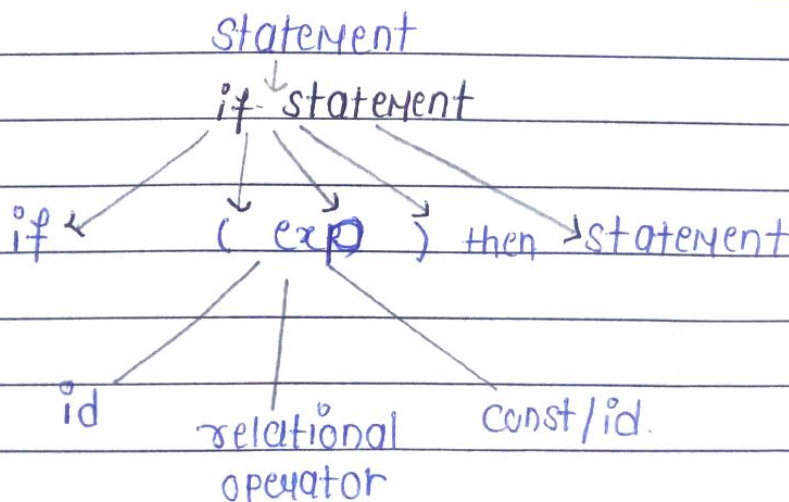 statement
if statement
if ( exp ) then statement
id relational operator const/id.